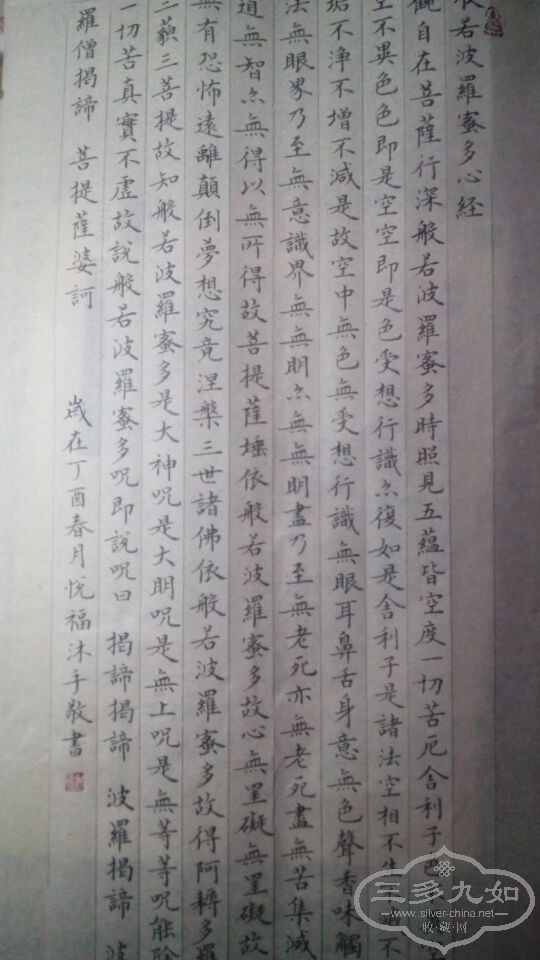 般若波羅蜜多心経
觀自在菩薩行深般若波羅蜜多時照見五蘊皆空度一切苦厄舍利子色
空不異色色即是空空即是色受想行識亦復如是舍利子是諸法空相不生
垢不淨不增不減是故空中無色無受想行識無眼耳鼻舌身意無色聲香味觸
法無眼界乃至無意識界無無明亦無無明盡乃至無老死亦無老死盡無苦集滅
道無智亦無得以無所得故菩提薩埵依般若波羅蜜多故心無罣礙無罣礙故
無有恐怖遠離顛倒夢想究竟涅槃三世諸佛依般若波羅蜜多故得阿耨多羅
三藐三菩提故知般若波羅蜜多是大神咒是大明咒是無上咒是無等等咒能除
一切苦真實不虛故說般若波羅蜜多咒即說咒曰 揭諦揭諦 波羅揭諦 波
羅僧揭諦 菩提薩婆訶 歲在丁酉春月悅福沐手敬書
三多九如
www.silver-china.net
收藏·网